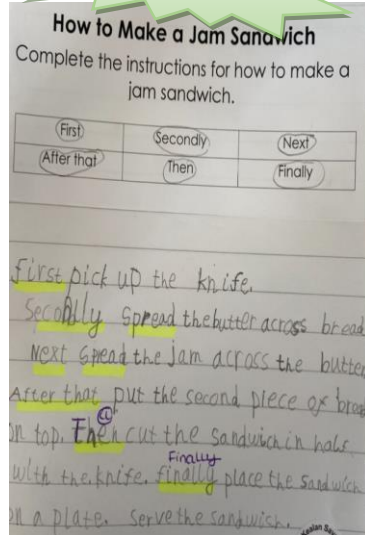 How to Make a Jam Sandwich
Complete the instructions for how to make a
jam sandwich.
First Secondly Next
After that Then Finally
first pick up the knife.
Secondlly Spread the butter across bread
Next Spread the jam across the butter
After that put the second piece of bread
on top. Then cut the sandwich in half
Finally
with the knife. finally place the sandwich
on a plate. Serve the sandwich.